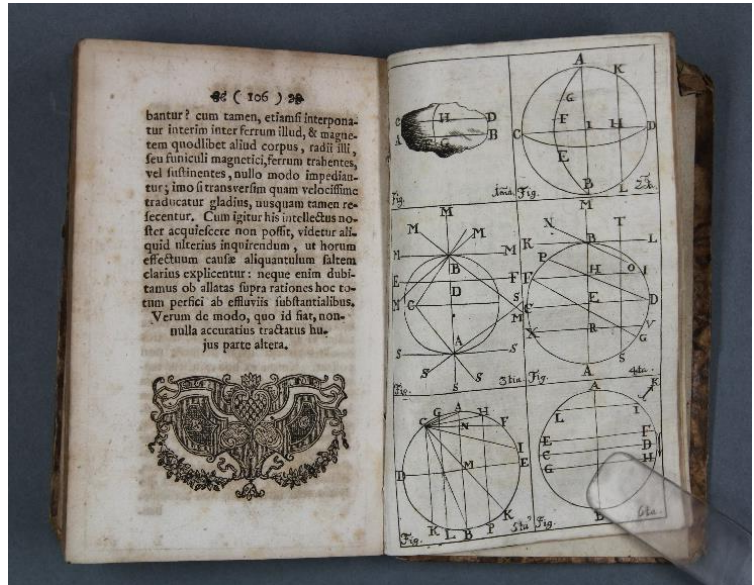 ( 106 )
bantur? cum tamen, etiamsi interpona-
tur interim inter ferrum illud, & magne-
tem quodlibet aliud corpus, radii illi,
seu funiculi magnetici, ferrum trahentes,
vel sustinentes, nullo modo impedian-
tur; imo si transversim quam velocissime
traducatur gladius, nusquam tamen re-
secentur. Cum igitur his intellectus no-
ster acquiescere non possit, videtur ali-
quid ulterius inquirendum, ut horum
effectuum causæ aliquantulum saltem
clarius explicentur: neque enim dubi-
tamus ob allatas supra rationes hoc to-
tum perfici ab effluviis substantialibus.
Verum de modo, quo id fiat, non-
nulla accuratius tractatus hu-
jus parte altera.
C H D
A G B
Fig. 1ma
A K
G
C F I H D
E
B L
Fig. 2da
M
M M
M B M
E F
M G D S
M
A
S S
S S
S
Fig. 3tia
M
N T
K B L
P H O I
F
C E D
X R V
G
S
A
Fig. 4ta
G A H
C N F
I
D M E
K L B P K
Fig. 5ta
A K
L I
E F
C D
G H
B
Fig. 6ta